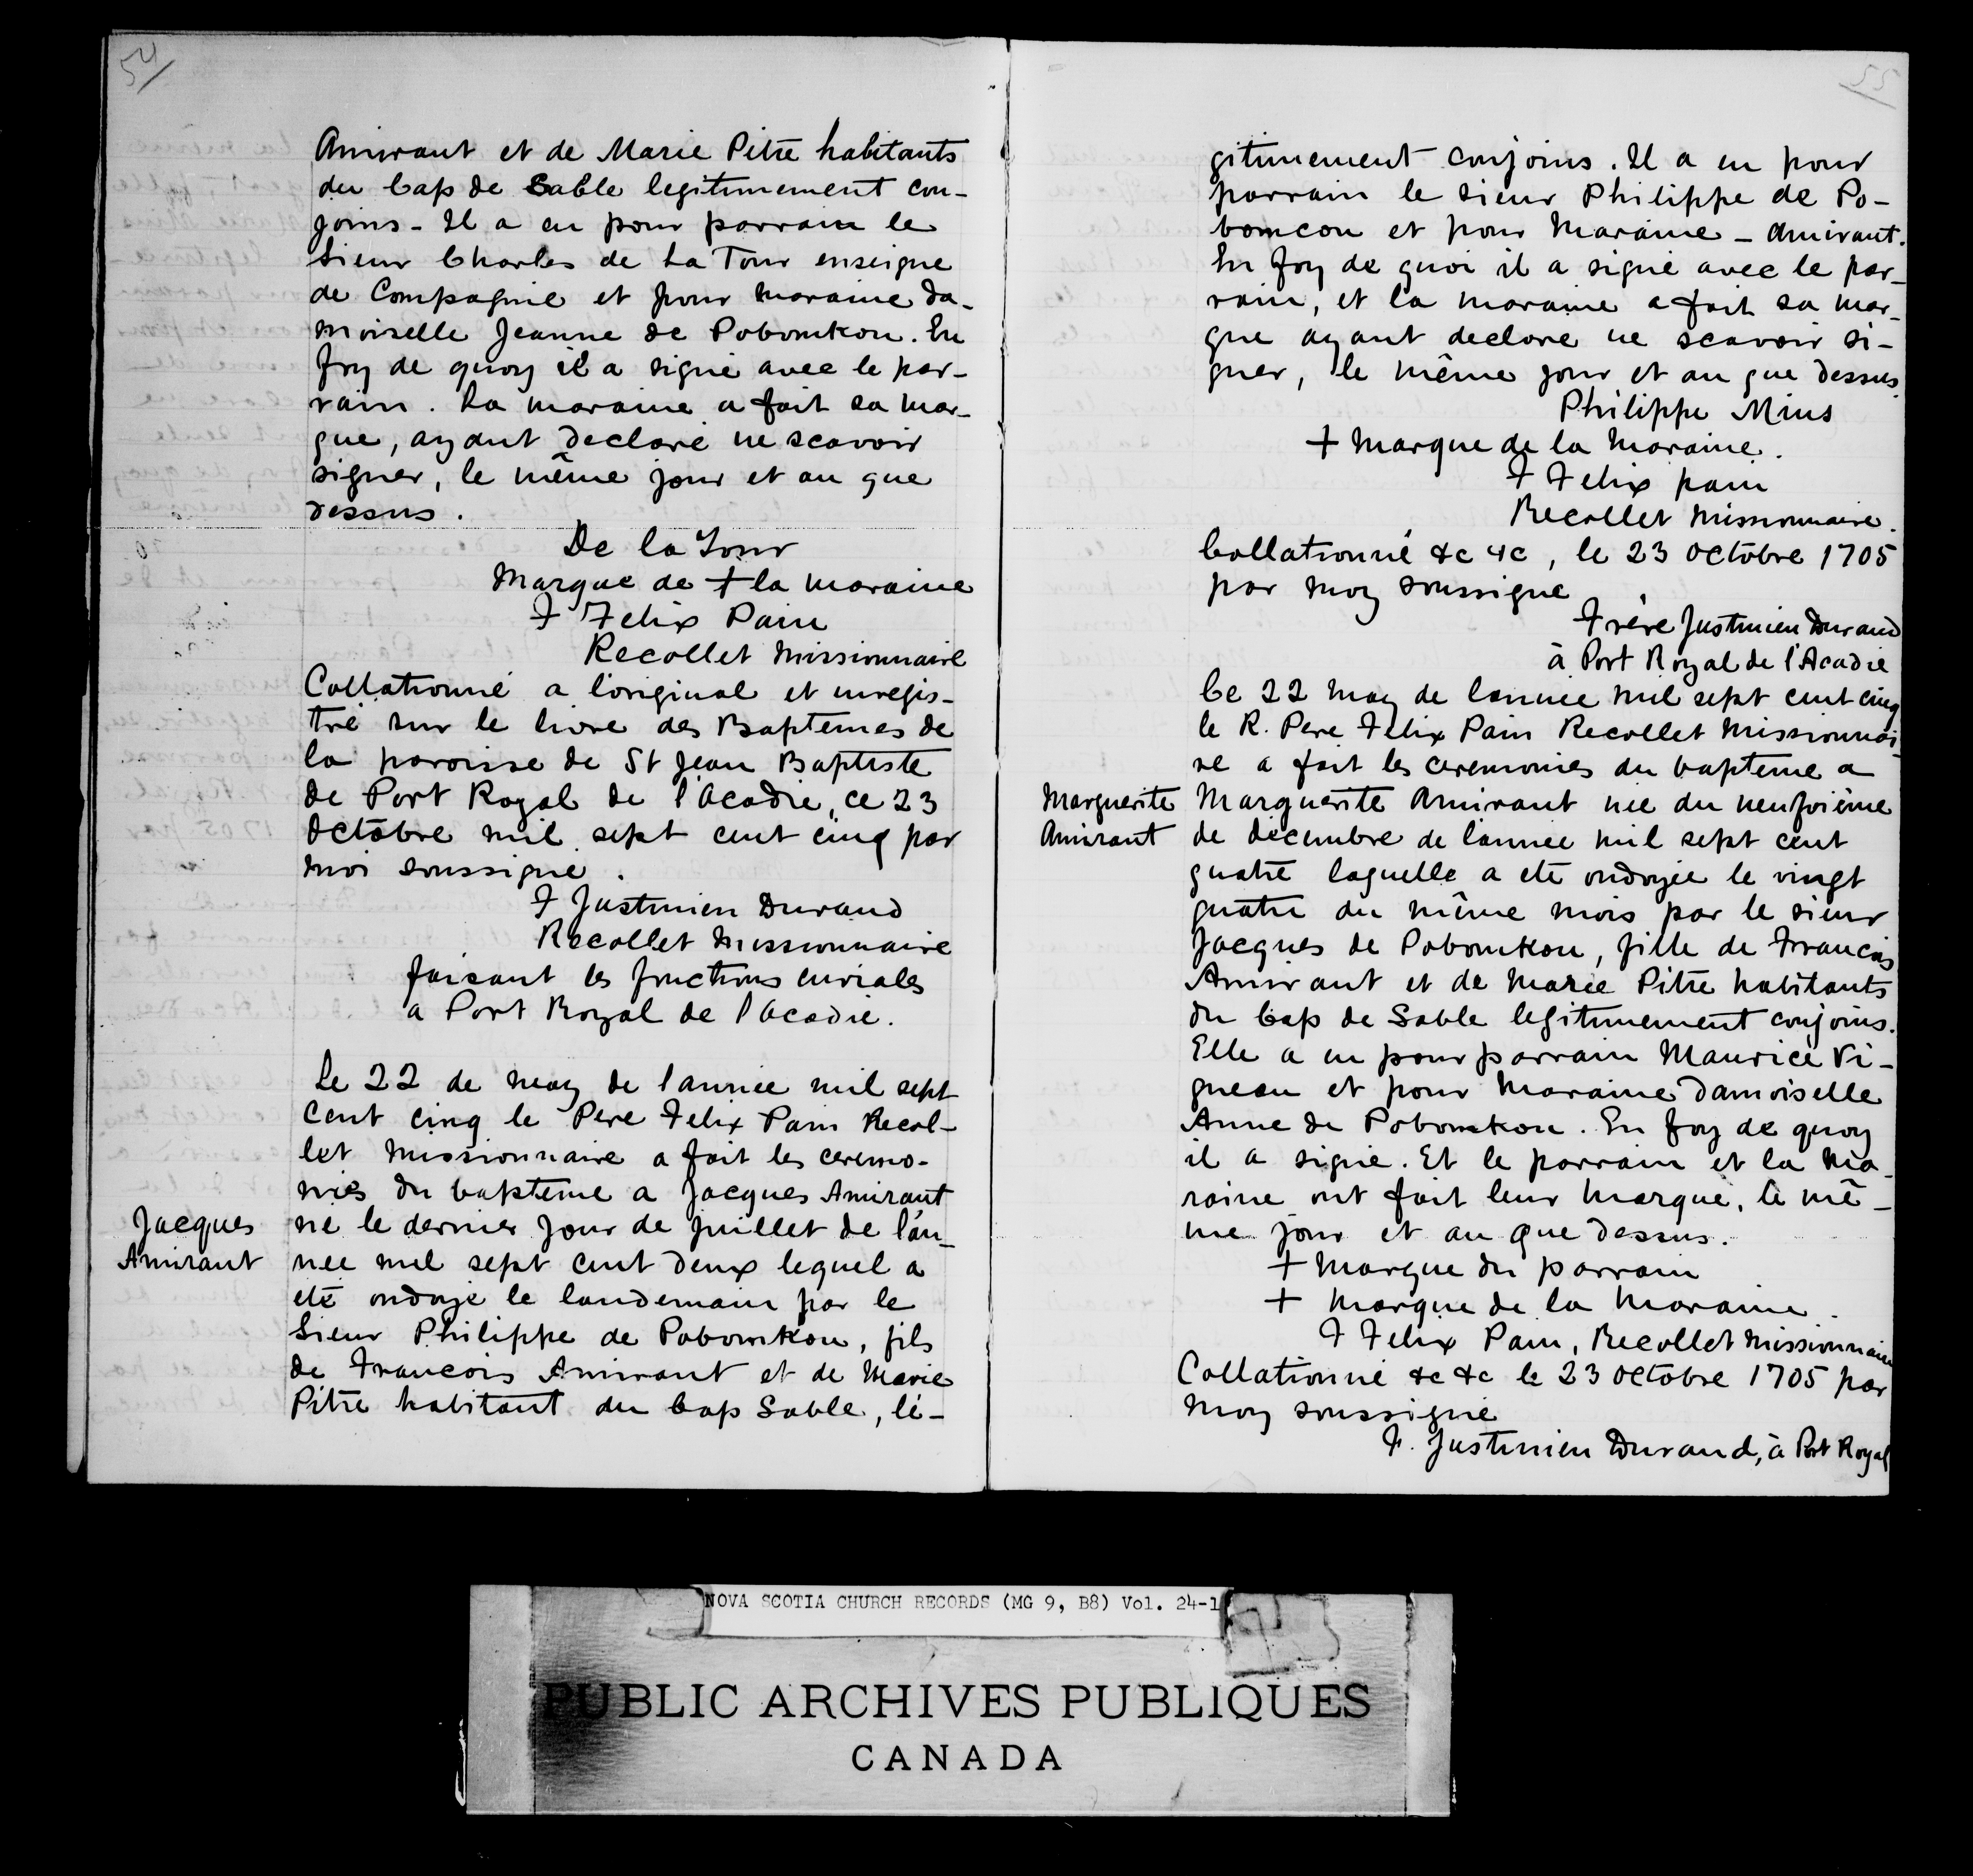 54
Amirant et de Marie Pitre habitants
du Cap de Sable legitimement con-
joins - Il a eu pour parrain le
Sieur Charles de La Tour enseigne
de Compagnie et pour Maraine da-
moiselle Jeanne de Pobomkou. En
foy de quoy il a signé avec le par-
rain. La maraine a fait sa mar-
que, ayant declaré ne scavoir
signer, le même jour et an que
dessus.
De la Tour
Marque de + la maraine
F Felix Pain
Recollet Missionnaire
Collationné a l'original et enregis-
tré sur le livre des Baptemes de
la paroisse de St Jean Baptiste
de Port Royal de l'Acadie, ce 23
Octobre mil sept cent cinq par
moi soussigné.
F Justinien Durand
Recollet Missionnaire
faisant les fonctions curiales
a Port Royal de l'Acadie.
Le 22 de may de l'année mil sept
cent cinq le Pere Felix Pain Recol-
let Missionnaire a fait les ceremo-
nies du bapteme a Jacques Amirant
Jacques
Amirant
né le dernier jour de juillet de l'an-
née mil sept cent deux lequel a
été ondoyé le landemain par le
Sieur Philippe de Pobomkou, fils
de Francois Amirant et de Marie
Pitre habitant du Cap Sable, lé-
55
gitimement conjoins. Il a eu pour
parrain le sieur Philippe de Po-
bomcou et pour Maraine - Amirant.
En foy de quoi il a signé avec le par-
rain, et la maraine a fait sa mar-
que ayant declare ne scavoir si-
gner, le même jour et an que dessus.
Philippe Mius
+ Marque de la Maraine.
F Felix pain
Recollet Missionnaire.
Collationné &c &c, le 23 Octobre 1705
par moy soussigné
Frère Justinien Durand
à Port Royal de l'Acadie
Ce 22 may de l'année mil sept cent cinq
le R. Pere Felix Pain Recollet Missionnai-
re a fait les ceremonies du bapteme a
Marguerite
Amirant
Marguerite Amirant née du neufvième
de décembre de l'année mil sept cent
quatre laquelle a eté ondoyée le vingt
quatre du même mois par le sieur
Jacques de Pobomkou, fille de Francois
Amirant et de Marie Pitre habitants
du Cap de Sable legitimement conjoins.
Elle a eu pour parrain Maurice Vi-
gneau et pour Maraine damoiselle
Anne de Pobomkou. En foy de quoy
il a signé. Et le parrain et la Ma-
raine ont fait leur marque, le mê-
me jour et an que dessus.
+ Marque du parrain
+ Marque de la Maraine.
F Felix Pain, Recollet Missionnaire
Collationné &c &c le 23 Octobre 1705 par
Moy soussigné
F. Justinien Durand, à Port Royal
NOVA SCOTIA CHURCH RECORDS (MG 9, B8) Vol. 24-1
PUBLIC ARCHIVES PUBLIQUES
CANADA